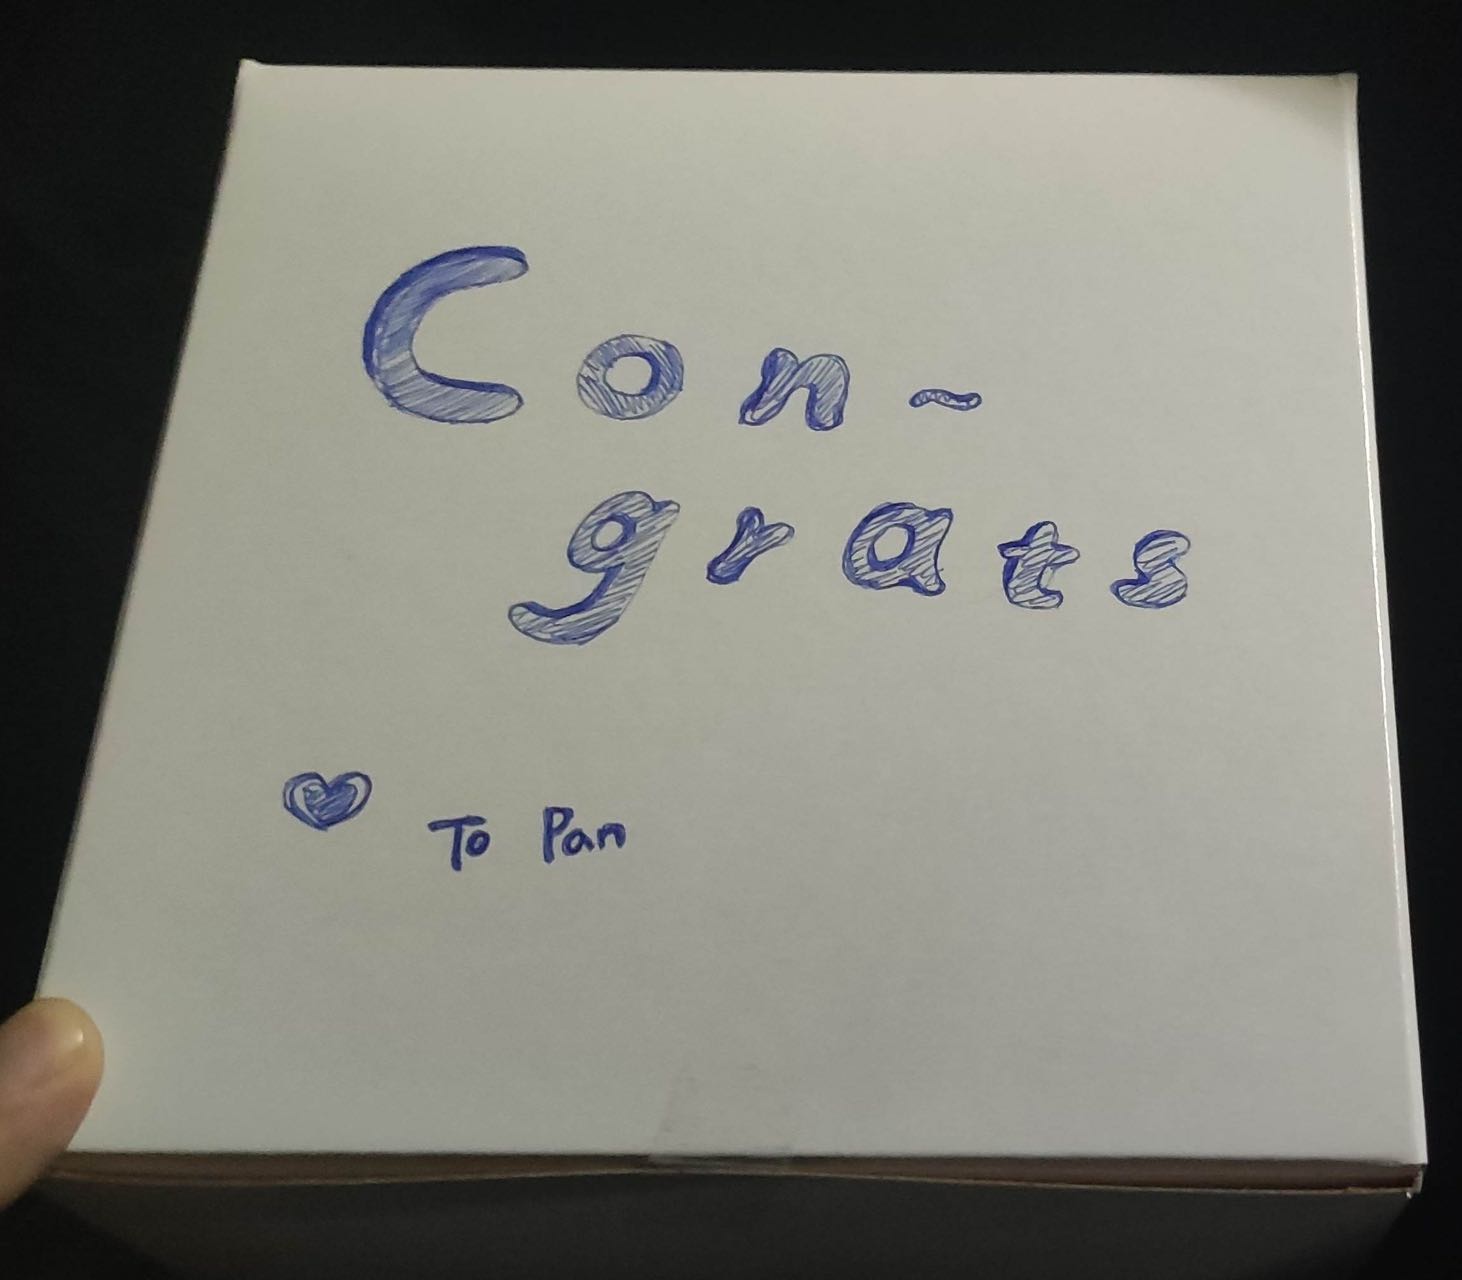 Con~
grats
♥ To Pan